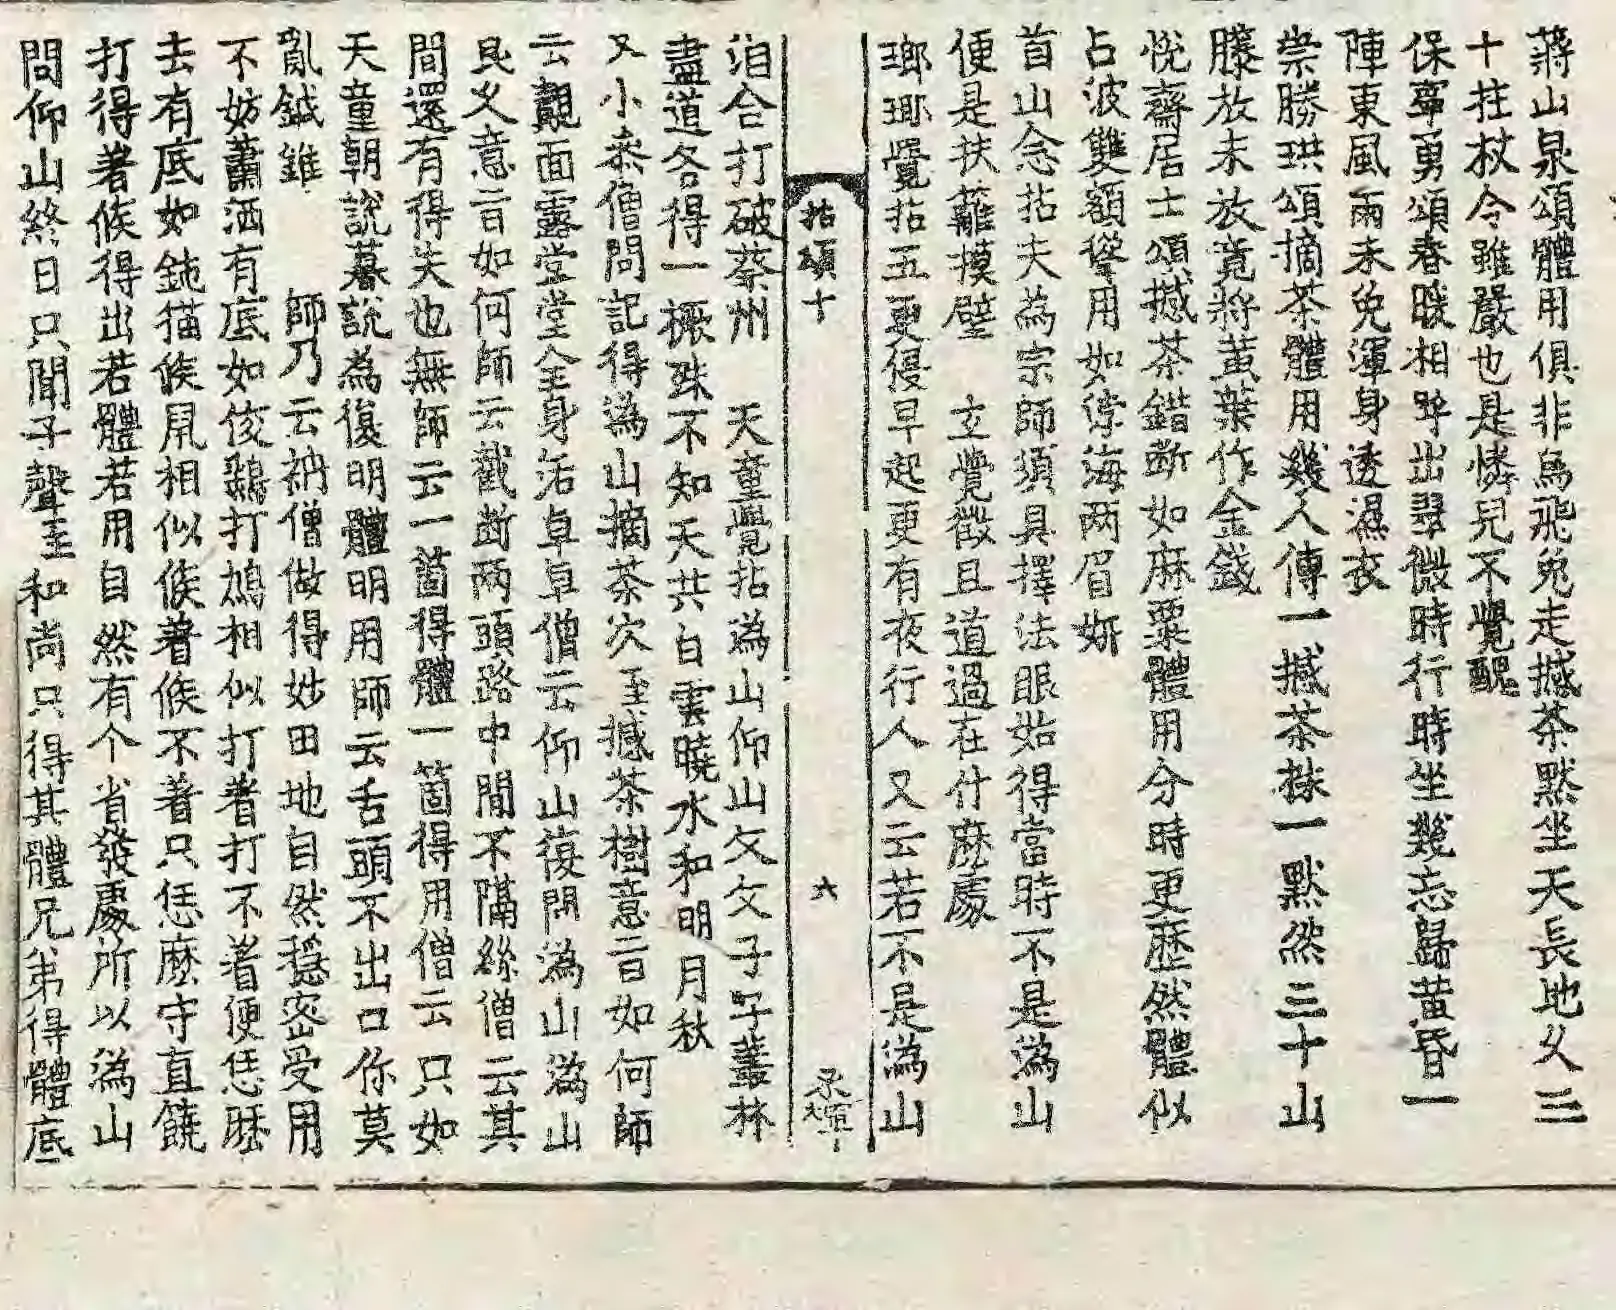 蔣山泉頌體用俱非烏飛兔走撼茶默坐天長地久三
十拄杖令雖嚴也是憐兒不覺醜
保寧勇頌春暖相呼出翠微時行時坐幾忘歸黃昏一
陣東風雨未免渾身透濕衣
崇勝珙頌摘茶體用幾人傳一撼茶株一默然三十山
藤放未放竟將黃葉作金錢
悅齋居士頌撼茶錯斷如麻粟體用分時更歷然體似
占波雙額 用如 海两眉妍
首山念拈夫為宗師須具擇法眼始得當時不是溈山
便是扶籬摸壁　玄覺徵且道過在什麽處
瑯瑘覺拈五更侵早起更有夜行人又云若不是溈山
拈頌十　六
洎合打破蔡州　天童覺拈溈山仰山父父子子叢林
盡道各得一橛殊不知天共白雲曉水和明月秋
又小叅僧問記得溈山摘茶次至撼茶樹意旨如何師
云覿面露堂堂全身活卓卓僧云仰山復問溈山溈山
良久意旨如何師云截斷两頭路中間不隔絲僧云其
間還有得失也無師云一箇得體一箇得用僧云只如
天童朝說暮說為復明體明用師云舌頭不出口你莫
亂鉞錐　師乃云衲僧做得妙田地自然穩密受用
不妨蕭洒有底如俊鷂打鳩相似打着打不着便恁麽
去有底如鈍猫候鼠相似候着候不着只恁麽守直饒
打得著候得出若體若用自然有个省發處所以溈山
問仰山終日只聞子聲至和尚只得其體兄弟得體底